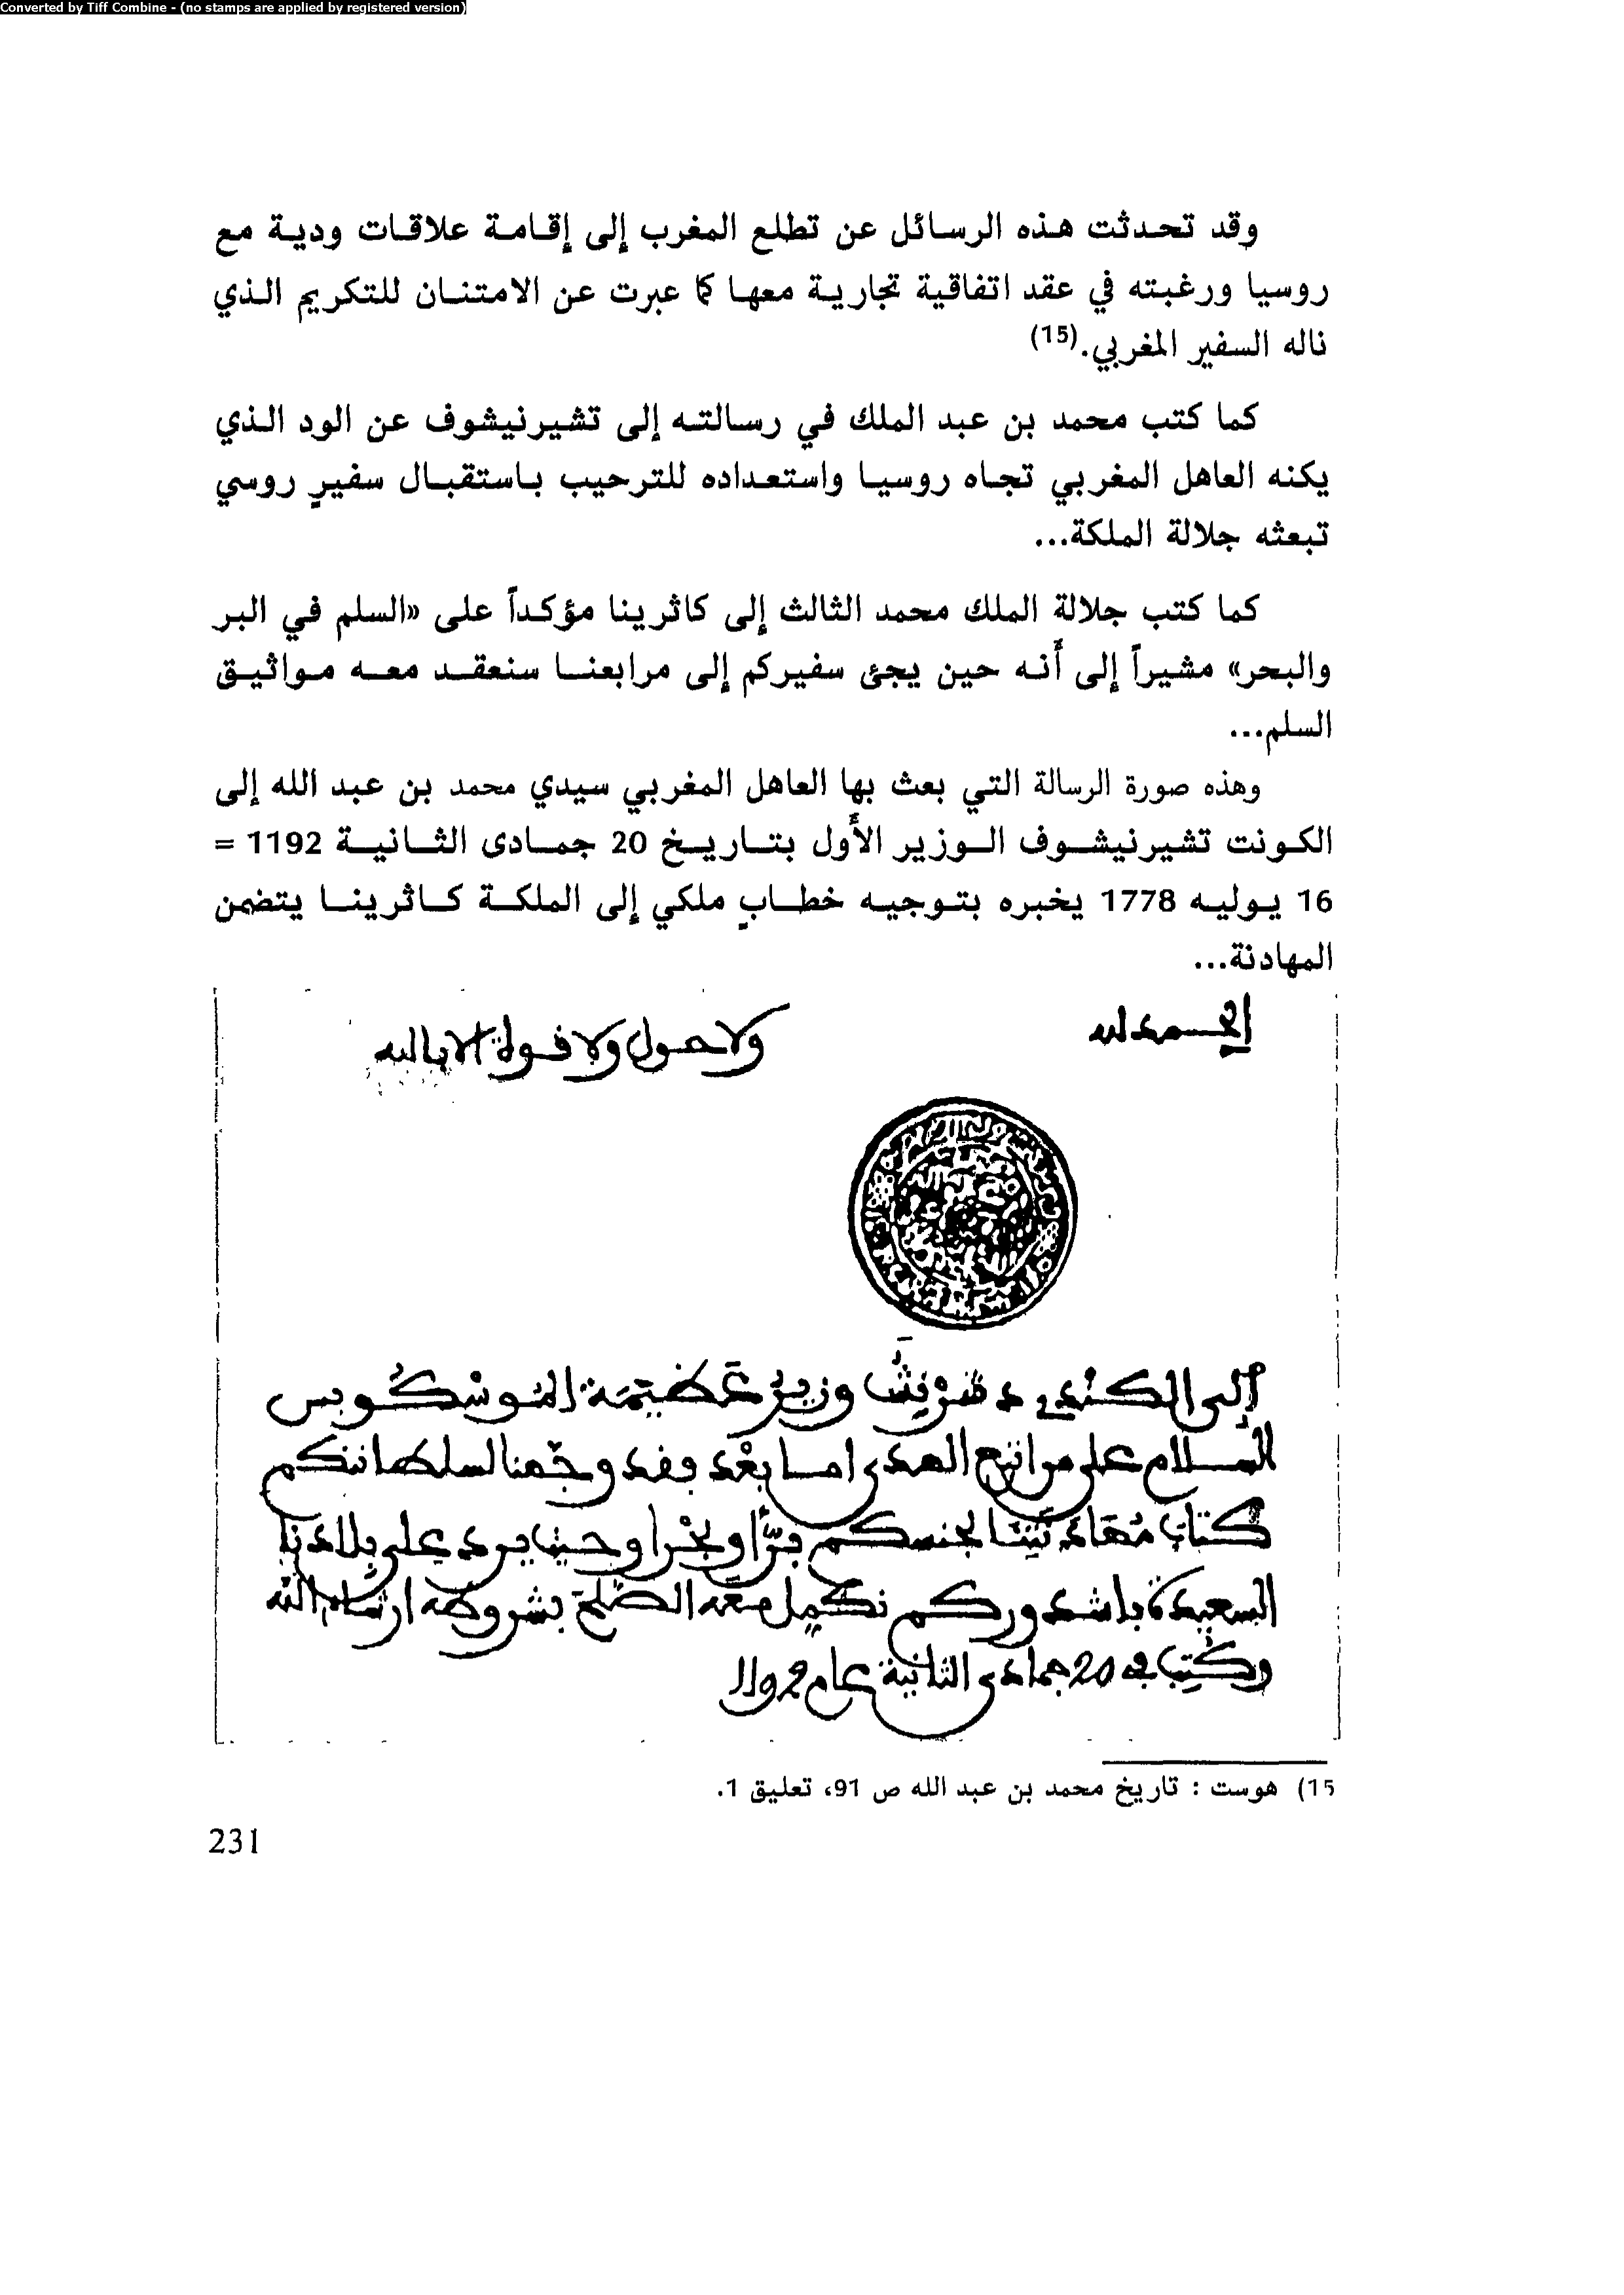 Converted by Tiff Combine - (no stamps are applied by registered version)
وقد تحدثت هذه الرسائل عن تطلع المغرب إلى إقامة علاقات ودية مع
روسيا ورغبته في عقد اتفاقية تجارية معها كما عبرت عن الامتنان للتكريم الذي
ناله السفير المغربي.(15)
كما كتب محمد بن عبد الملك في رسالته إلى تشيرنيشوف عن الود الذي
يكنه العاهل المغربي تجاه روسيا واستعداده للترحيب باستقبال سفيرٍ روسي
تبعثه جلالة الملكة...
كما كتب جلالة الملك محمد الثالث إلى كاثرينا مؤكداً على «السلم في البر
والبحر» مشيراً إلى أنه حين يجئ سفيركم إلى مرابعنا سنعقد معه مواثيق
السلم...
وهذه صورة الرسالة التي بعث بها العاهل المغربي سيدي محمد بن عبد الله إلى
الكونت تشيرنيشوف الوزير الأول بتاريخ 20 جمادى الثانية 1192 =
16 يوليه 1778 يخبره بتوجيه خطابٍ ملكي إلى الملكة كاثرينا يتضمن
المهادنة...
الحمد لله
ولا حول ولا قوة الا بالله
إلى الكندي وزير عظيمة الموسكوبس
السلام على من اتبع الهدى اما بعد وفقد وجهنا لسلطانتكم
كتاب لجنسكم برا وبحرا وحين يرد على بلادنا
السعيدة باشدوركم نكمل معه الصلح بشروطه ان شاء الله
وكتب في 20 جمادى الثانية عام 1192
15) هوست : تاريخ محمد بن عبد الله ص 91، تعليق 1.
231